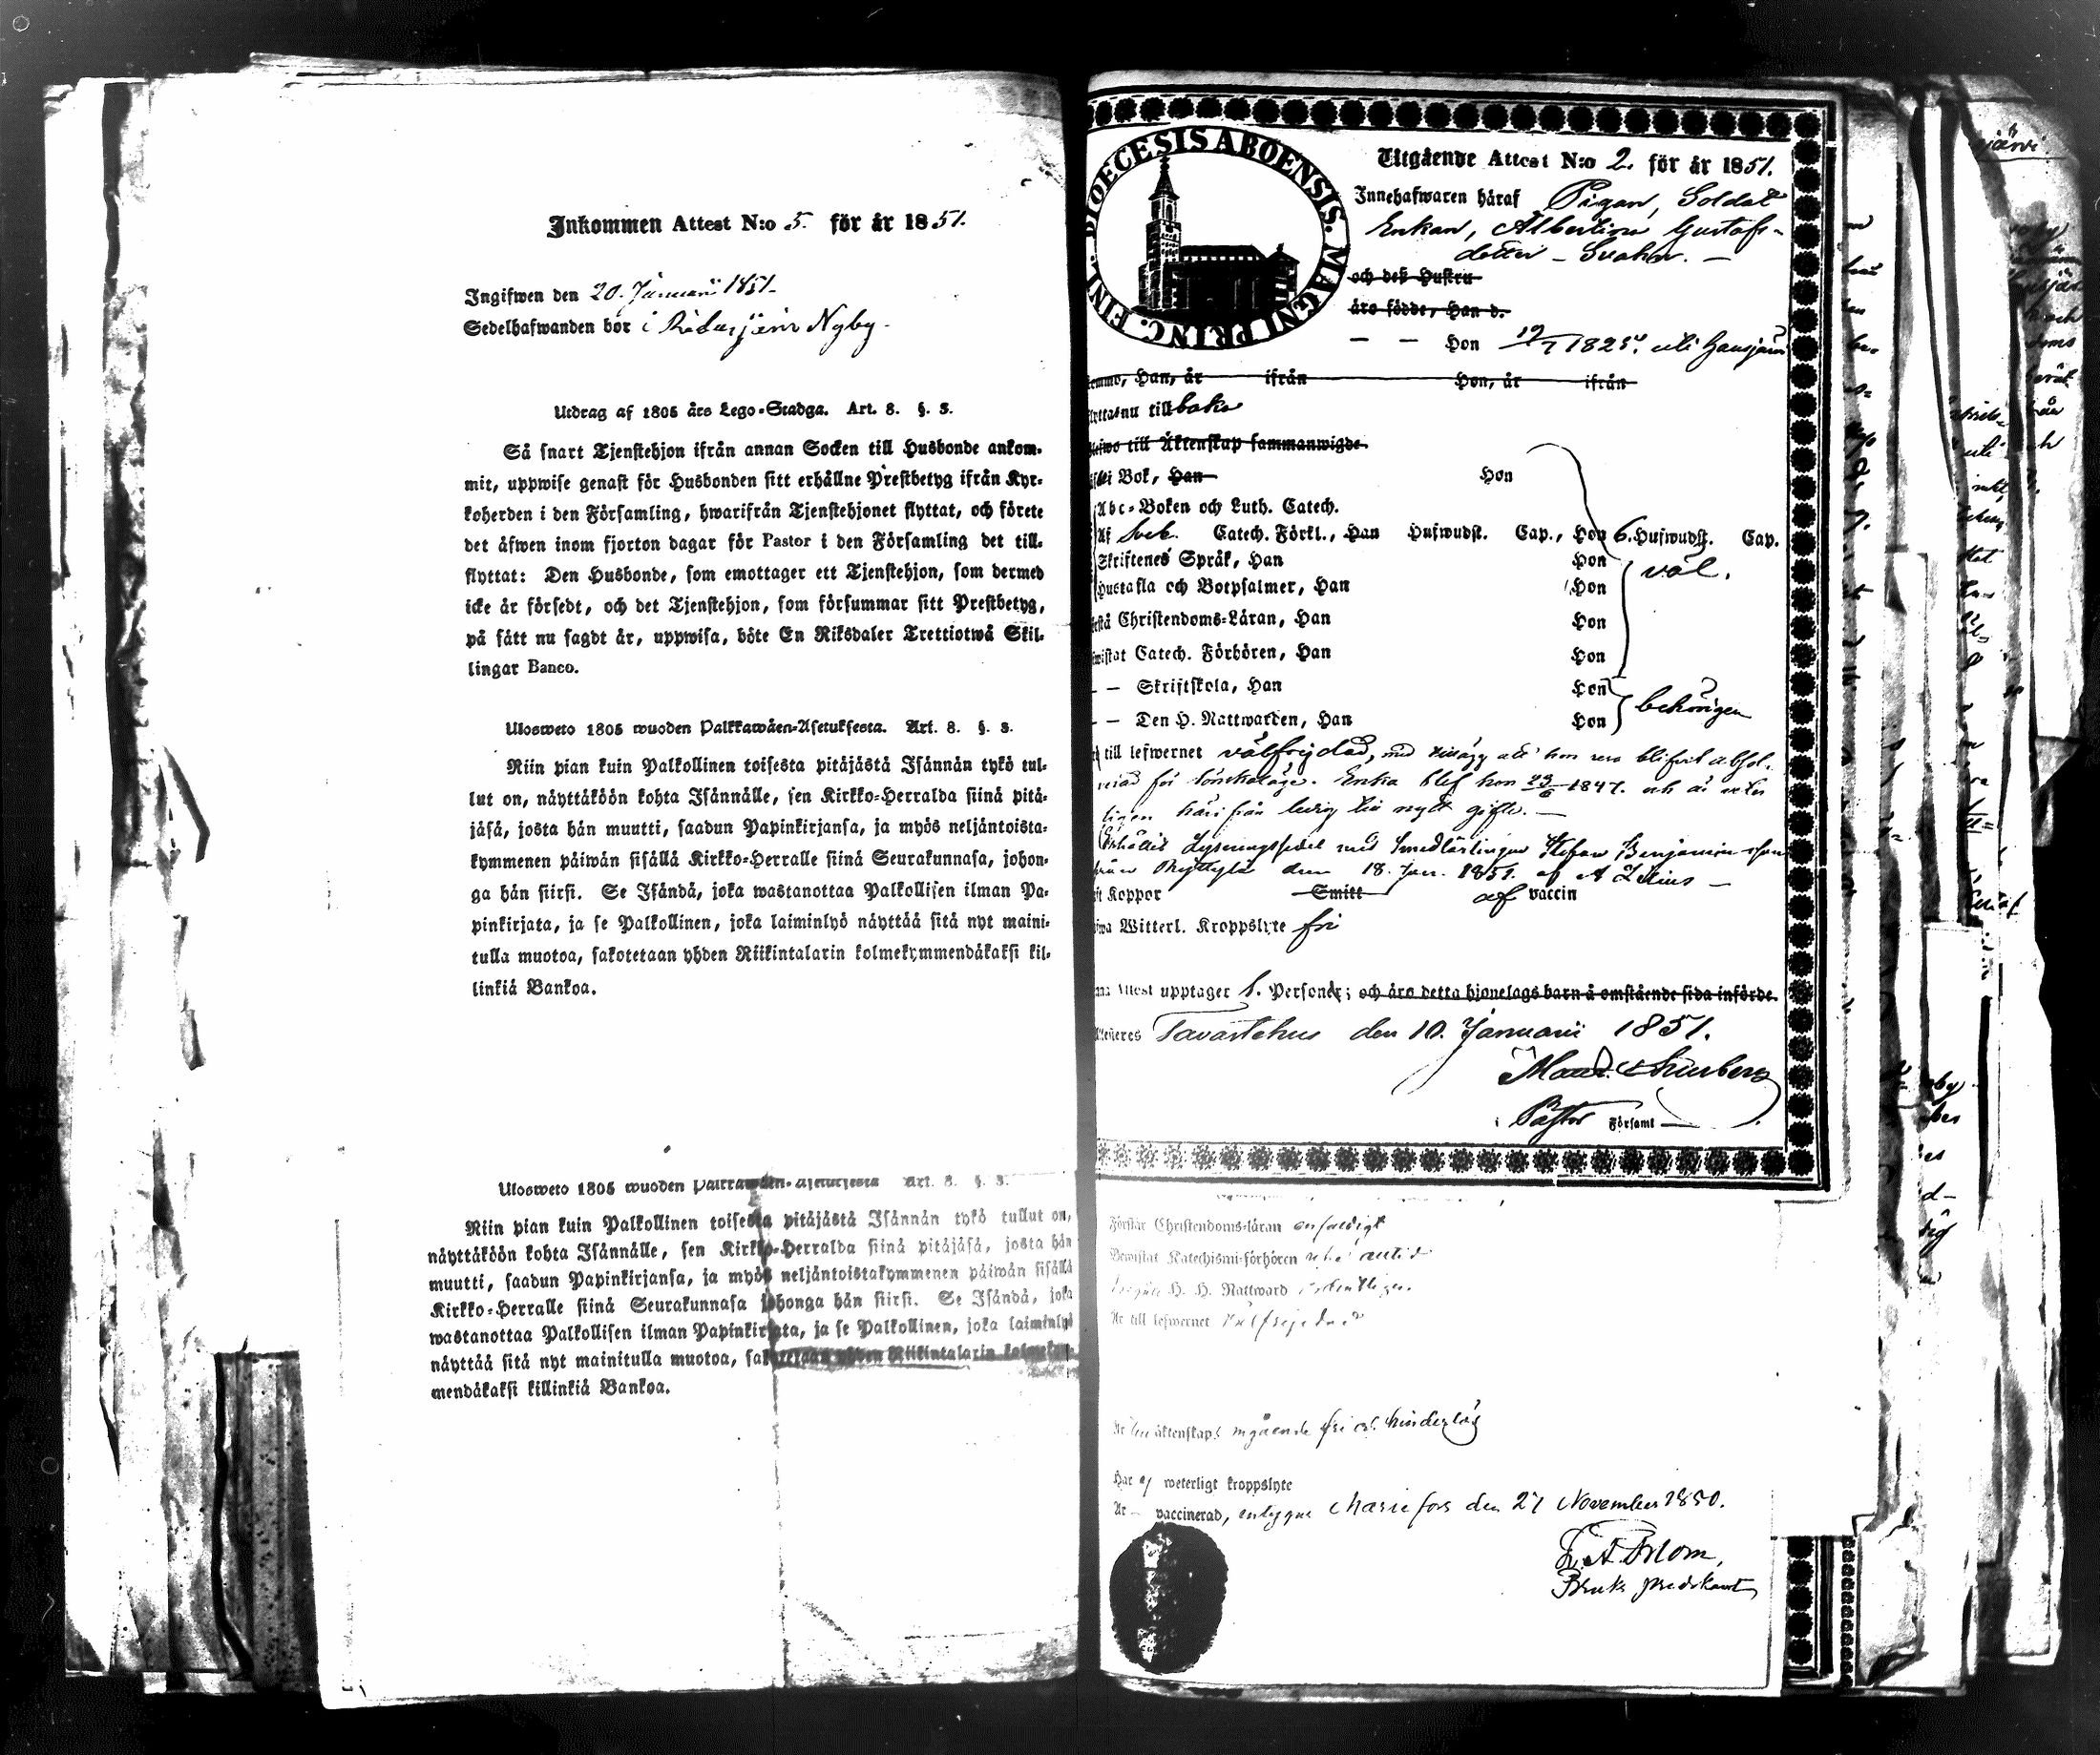 Inkommen Attest N:o 5. för år 1851.
Ingifwen den 20. Januari 1851.
Sedelhafwanden bor i Nyby.
Utdrag af 1805 års Lego-Stadga. Art. 8. §. 3.
Så snart Tjenstehjon ifrån annan Socken till Husbonde ankom-
mit, uppwise genast för Husbonden sitt erhållne Prestbetyg ifrån Kyr-
koherden i den Församling, hwarifrån Tjenstehjonet flyttat, och förete
det äfwen inom fjorton dagar för Pastor i den Församling det till-
flyttat: Den Husbonde, som emottager ett Tjenstehjon, som dermed
icke är försedt, och det Tjenstehjon, som försummar sitt Prestbetyg,
på sätt nu sagdt är, uppwisa, böte En Riksdaler Trettiotwå Skil-
lingar Banco.
Ulosweto 1805 wuoden Palkkawäen-Asetuksesta. Art. 8. §. 3.
Niin pian kuin Palkollinen toisesta pitäjästä Isännän tykö tul-
lut on, näyttäköön kohta Isännälle, sen Kirkko-Herralda siinä pitä-
jäsä, josta hän muutti, saadun Papinkirjansa, ja myös neljäntoista-
kymmenen päiwän sisällä Kirkko-Herralle siinä Seurakunnasa, johon-
ga hän siirsi. Se Isändä, joka wastanottaa Palkollisen ilman Pa-
pinkirjata, ja se Palkollinen, joka laiminlyö näyttää sitä nyt maini-
tulla muotoa, sakotetaan yhden Riikintalarin kolmekymmendäkaksi kil-
linkiä Bankoa.
Ulosweto 1805 wuoden Palkkawäen-Asetuksesta Art. 8. §. 3.
Niin pian kuin Palkollinen toisesta pitäjästä Isännän tykö tullut on,
näyttäköön kohta Isännälle, sen Kirkko-Herralda siinä pitäjäsä, josta hän
muutti, saadun Papinkirjansa, ja myös neljäntoistakymmenen päiwän sisällä
Kirkko-Herralle siinä Seurakunnasa johonga hän siirsi. Se Isändä, joka
wastanottaa Palkollisen ilman Papinkirjata, ja se Palkollinen, joka laiminlyö
näyttää sitä nyt mainitulla muotoa, sakotetaan yhden Riikintalarin kolmekym-
mendäkaksi killinkiä Bankoa.
DIOECESIS ABOENSIS. MAGNI PRINC. FINL.
Utgående Attest N:o 2. för år 1851.
Innehafwaren häraf Pigan, Soldat
Enkan, Albertina Gustafs-
dotter Svahn.
och deß Hustru
äro födde, Han d.
Hon 19/7 1825. uti Hausjärvi
Han, år ifrån Hon, år ifrån
nu tillbaka
till Äktenskap sammanwigde
i Bok, Han Hon
Abc-Boken och Luth. Catech.
Af Sveb. Catech. Förkl., Han Hufwudst. Cap., Hon 6. Hufwudst. Cap.
Skriftenes Språk, Han Hon väl.
Hustafla och Botpsalmer, Han Hon
Christendoms-Läran, Han Hon
Catech. Förhören, Han Hon
Skriftskola, Han Hon
Den H. Nattwarden, Han Hon behörigen
till lefwernet välfrejdad, med tillägg att hon
för lönskaläge. Enka blef hon 23/6 1847. och är
härifrån ledig till nytt gifte.
Erhållit Lysningssedel med Smedlärlingen Stefan Benjamin
den 18. Jan. 1851. af A
Koppor Smitt af vaccin
Witterl. Kroppslyte fri
Attest upptager 1. Personer; och äro detta hjonelags barn å omstående sida införde.
Tavastehus den 10. Januari 1851.
i Pastor Församl
Förstår Christendoms-läran enfaldigt
Bewistat Katechismi-förhören
H. H. Nattward ordentligen
Är till lefwernet välfrejdad
äktenskaps ingående fri och hinderlös
Har ej weterligt kroppslyte
Är vaccinerad, betygar Mariefors den 27 November 1850.
Blom,
Bruks predikant